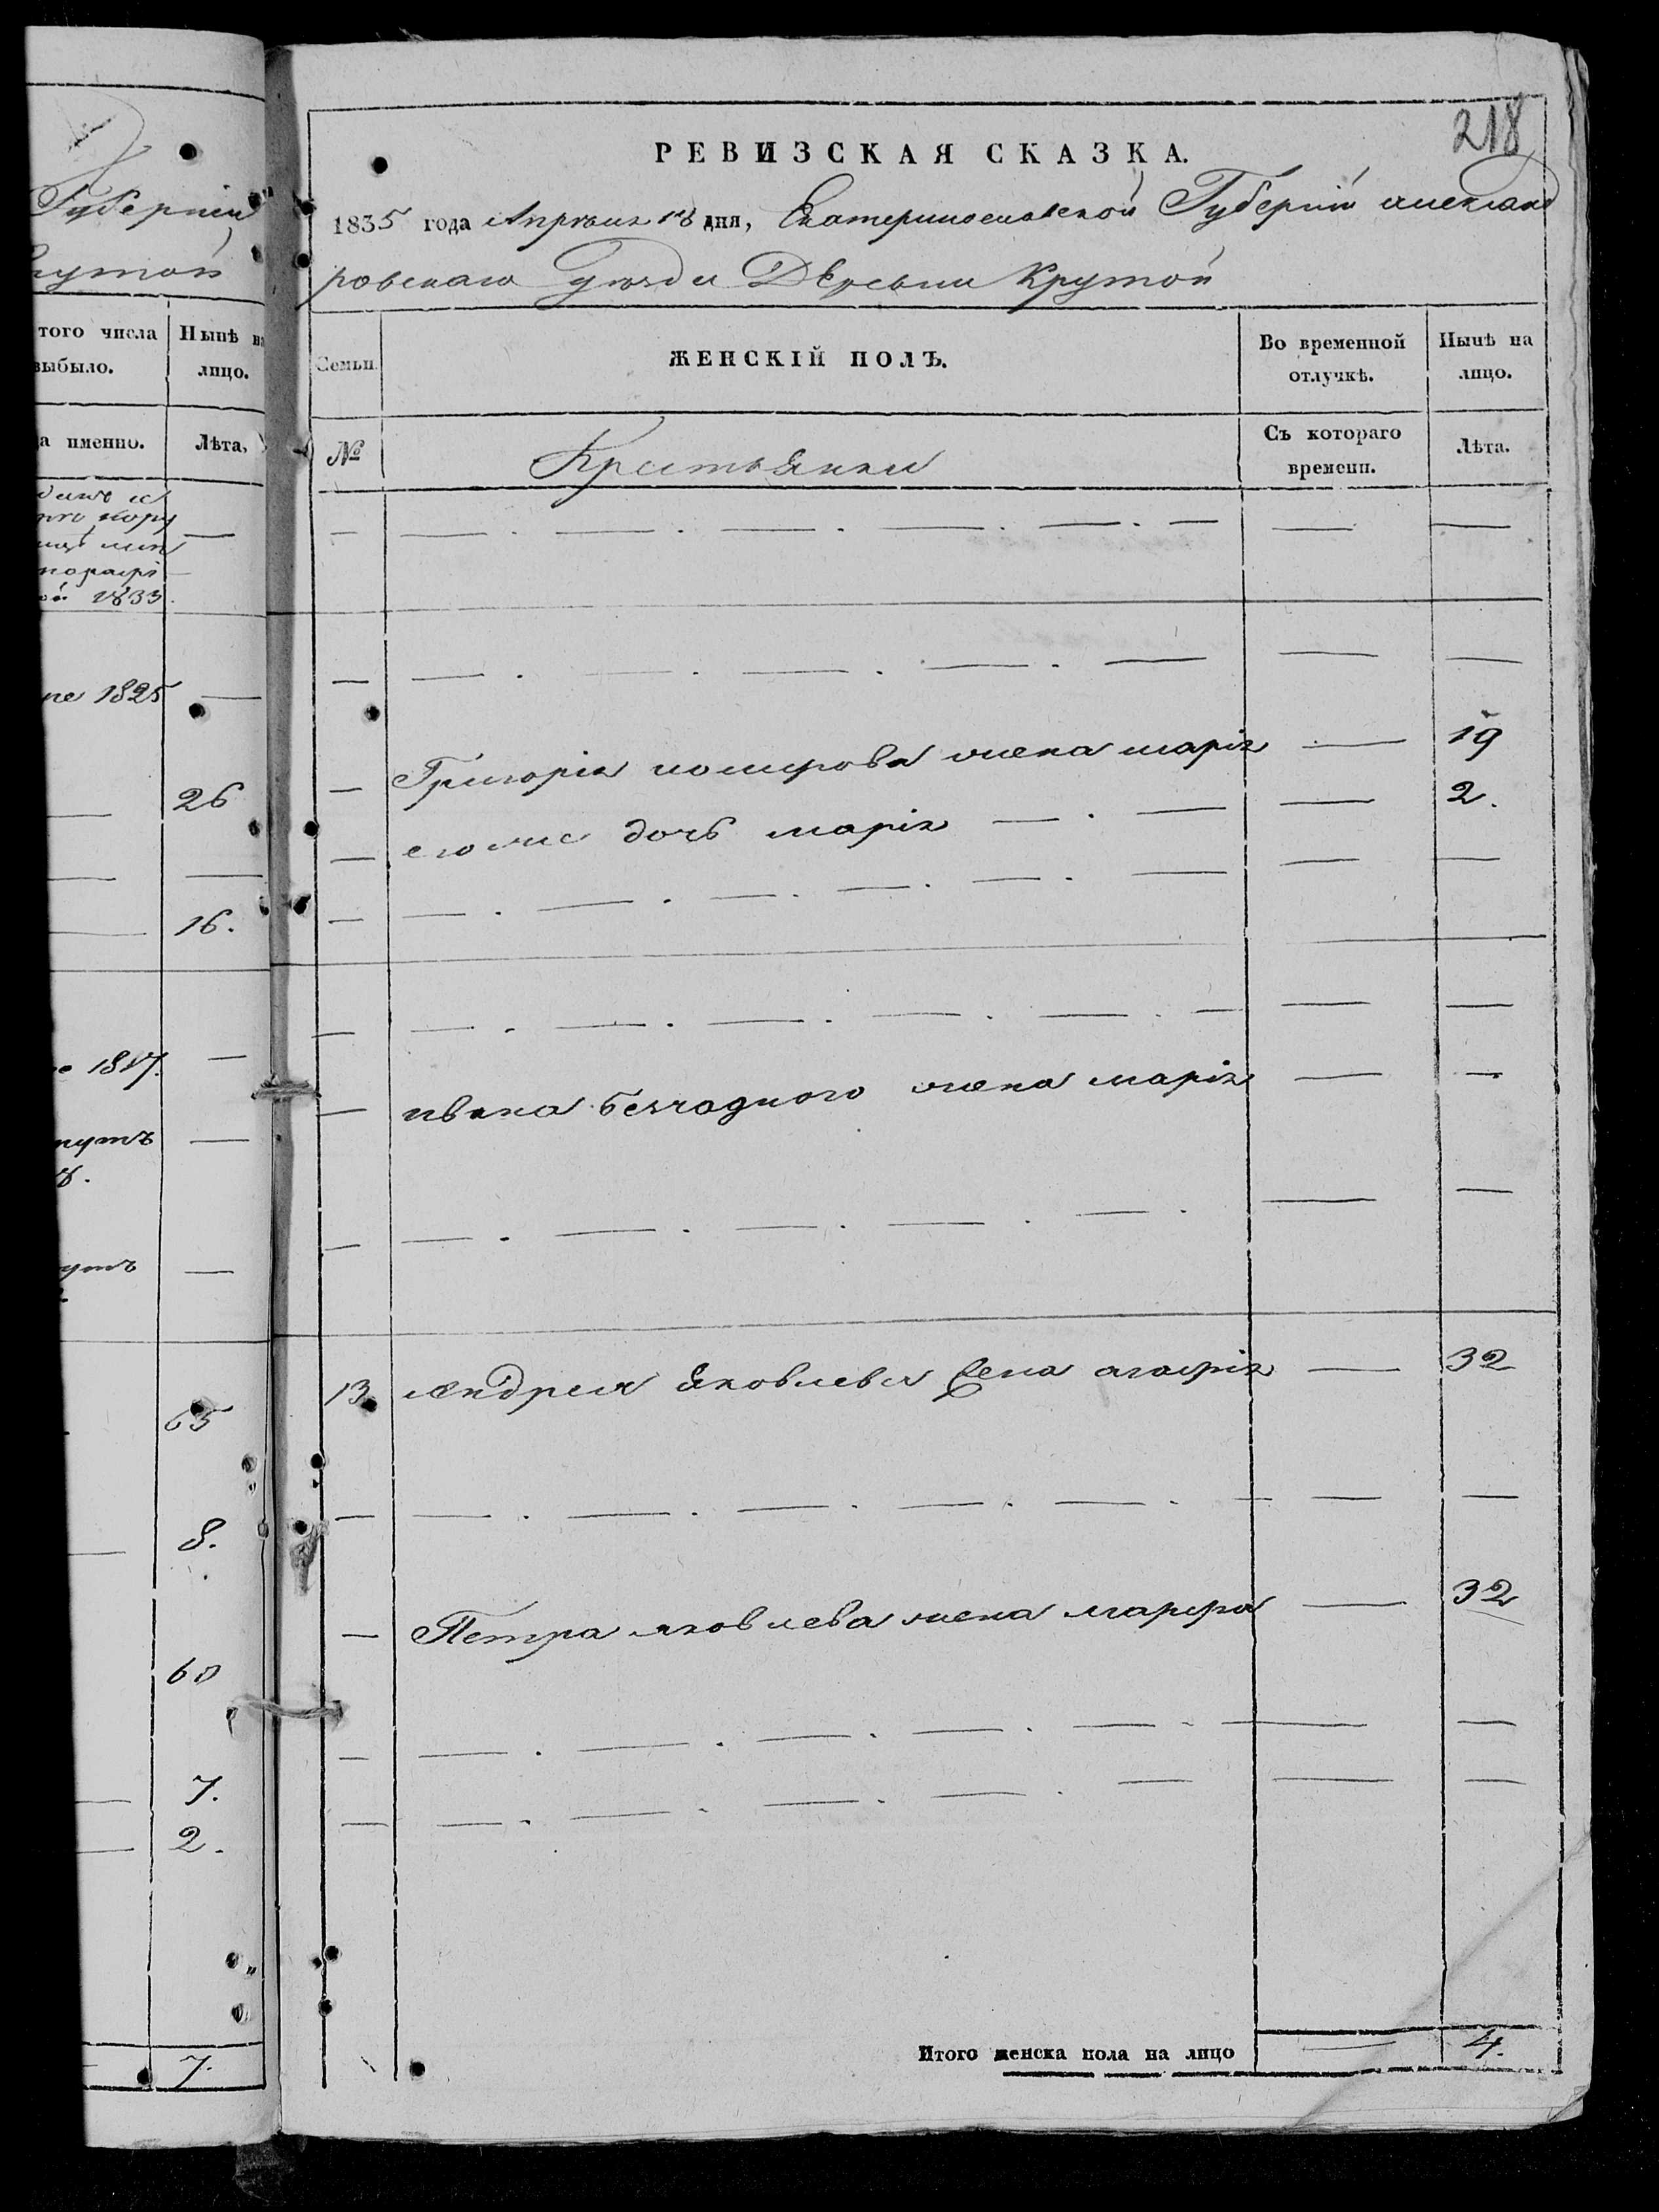 Губерніи
Крутой
того числа
выбыло.
Нынѣ на
лицо.
а именно.
Лѣта,
1833
1825 —
— 26
— —
— 16.
1817. —
65
— 8.
60
— 7.
— 2.
7.
218
РЕВИЗСКАЯ СКАЗКА.
1835 года Апрѣля 18 дня, Екатеринославской Губерніи александ
ровскаго уѣзда Деревни Крутой
Семьи.
ЖЕНСКІЙ ПОЛЪ.
Во временной
отлучкѣ.
Нынѣ на
лицо.
№
Крестьянки
Съ котораго
времени.
Лѣта.
— Григорія жена марія — 19
— его же дочь марія — . — — 2.
— ивана безчаднаго жена марія — —
13. андрея яковлева жена агафія — 32
— Петра яковлева жена марфа — 32
Итого женска пола на лицо — 4.